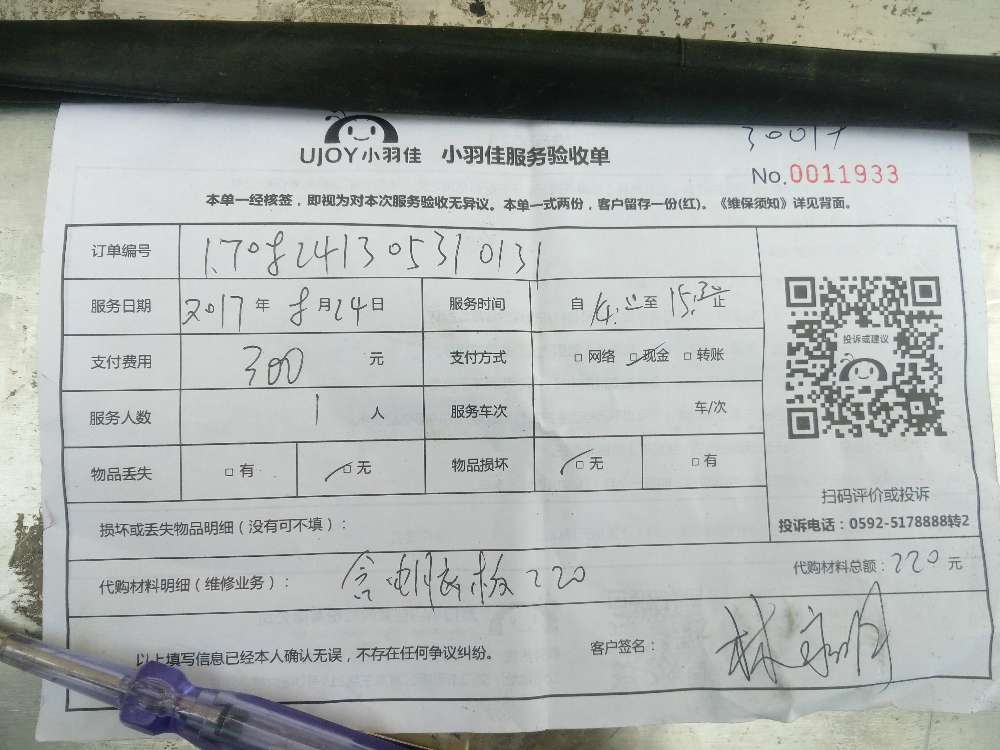 UJOY小羽佳 小羽佳服务验收单
No.0011933
本单一经核签，即视为对本次服务验收无异议。本单一式两份，客户留存一份(红)。《维保须知》详见背面。
订单编号 1708241305310131
服务日期 2017年8月24日 服务时间 自 至15:30止
支付费用 300元 支付方式 □网络 □现金 □转账
服务人数 1人 服务车次 车/次
物品丢失 □有 □无 物品损坏 □无 □有
投诉或建议
扫码评价或投诉
投诉电话：0592-5178888转2
损坏或丢失物品明细（没有可不填）：
代购材料明细（维修业务）：含 板220 代购材料总额：220元
以上填写信息已经本人确认无误，不存在任何争议纠纷。 客户签名：林